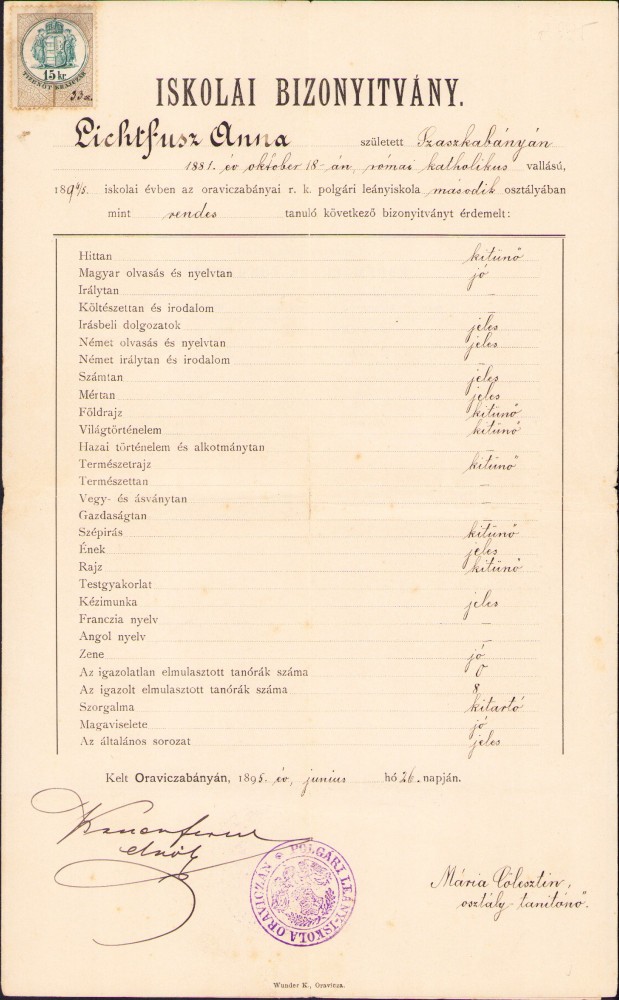 15 kr.
TIZENÖT KRAJCZÁR
ISKOLAI BIZONYITVÁNY.
Lichtfusz Anna született Szaszkabányán
1881. év október 18-án, római katholikus vallású,
189 4/5. iskolai évben az oraviczabányai r. k. polgári leányiskola második osztályában
mint rendes tanuló következő bizonyitványt érdemelt:
Hittan kitünő
Magyar olvasás és nyelvtan jó
Irálytan —
Költészettan és irodalom —
Irásbeli dolgozatok jeles
Német olvasás és nyelvtan jeles
Német irálytan és irodalom —
Számtan jeles
Mértan jeles
Földrajz kitünő
Világtörténelem kitünő
Hazai történelem és alkotmánytan —
Természetrajz kitünő
Természettan —
Vegy- és ásványtan —
Gazdaságtan —
Szépirás kitünő
Ének jeles
Rajz kitünő
Testgyakorlat —
Kézimunka jeles
Franczia nyelv —
Angol nyelv —
Zene jó
Az igazolatlan elmulasztott tanórák száma 0
Az igazolt elmulasztott tanórák száma 8
Szorgalma kitartó
Magaviselete jó
Az általános sorozat jeles
Kelt Oraviczabányán, 1895. év, junius hó 26. napján.
elnök
POLGÁRI LEÁNY-ISKOLA ORAVICZÁN
Mária Cölesztin,
osztály-tanitónő.
Wunder K., Oravicza.